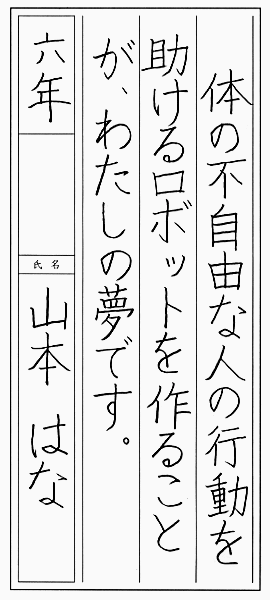 体の不自由な人の行動を
助けるロボットを作ること
が、わたしの夢です。
六年
氏名
山本 はな